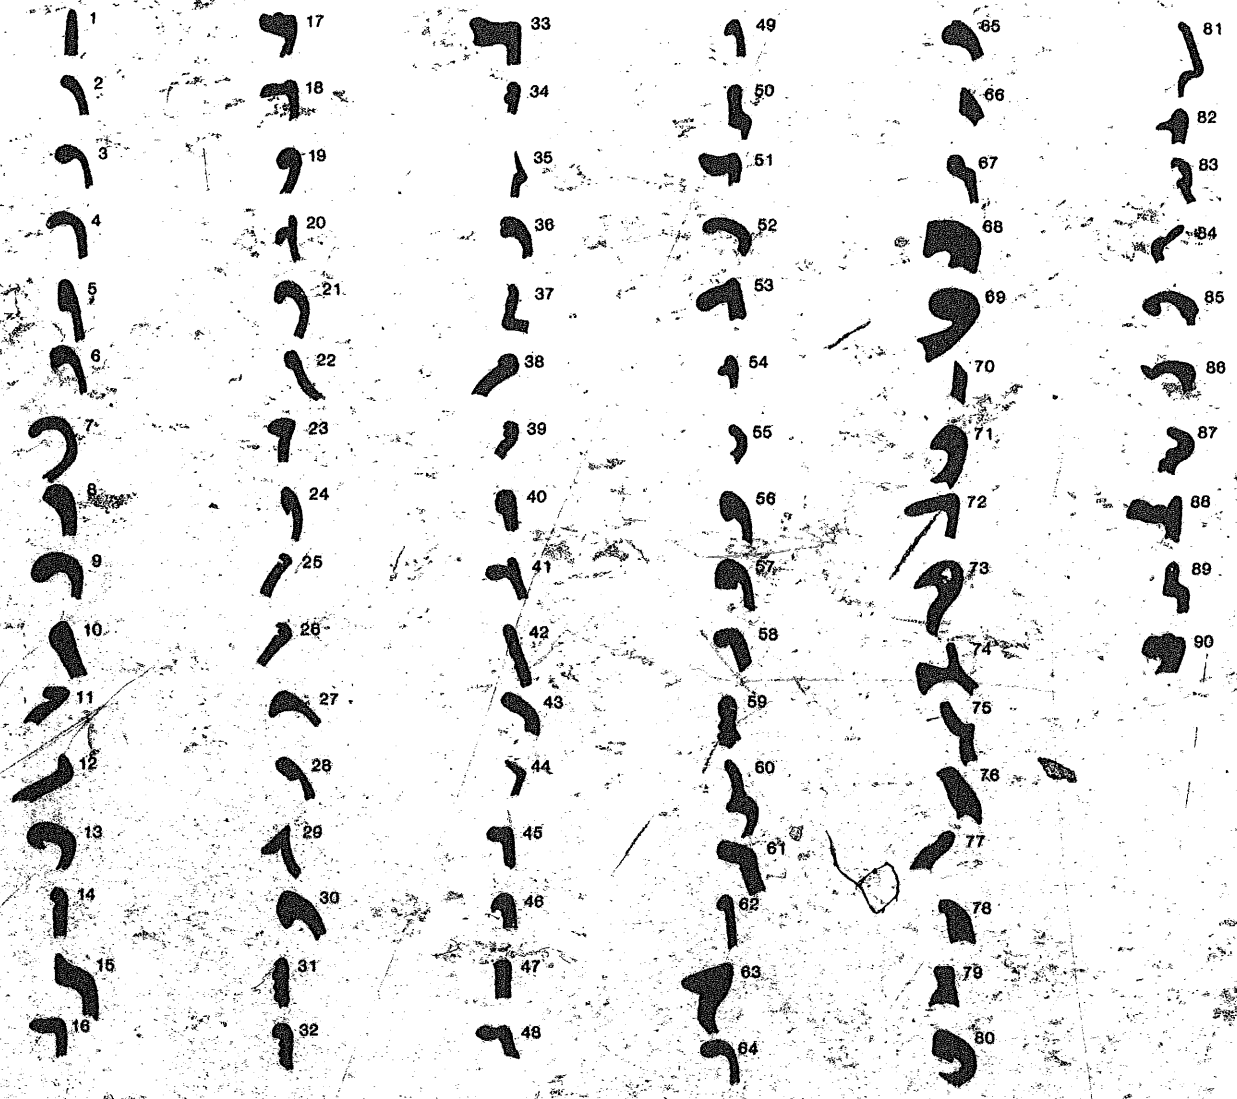 1
2
3
4
5
6
7
8
9
10
11
12
13
14
15
16
17
18
19
20
21
22
23
24
25
26
27
28
29
30
31
32
33
34
35
36
37
38
39
40
41
42
43
44
45
46
47
48
49
50
51
52
53
54
55
56
57
58
59
60
61
62
63
64
65
66
67
68
69
70
71
72
73
74
75
76
77
78
79
80
81
82
83
84
85
86
87
88
89
90